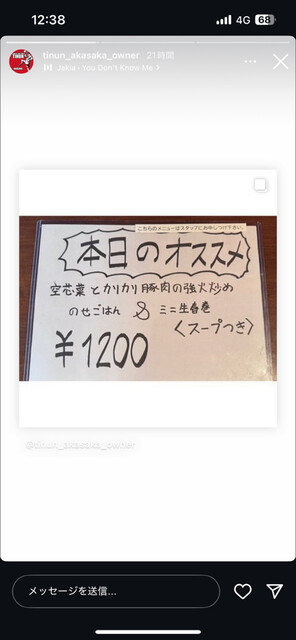 12:38
4G 68
tinun_akasaka_owner 21時間
Jakia - You Don't Know Me >
こちらのメニューはスタッフにお申しつけ下さい。
本日のオススメ
空芯菜とカリカリ豚肉の強火炒め
のせごはん & ミニ生春巻
〈スープつき〉
¥1200
@tinun_akasaka_owner
メッセージを送信...